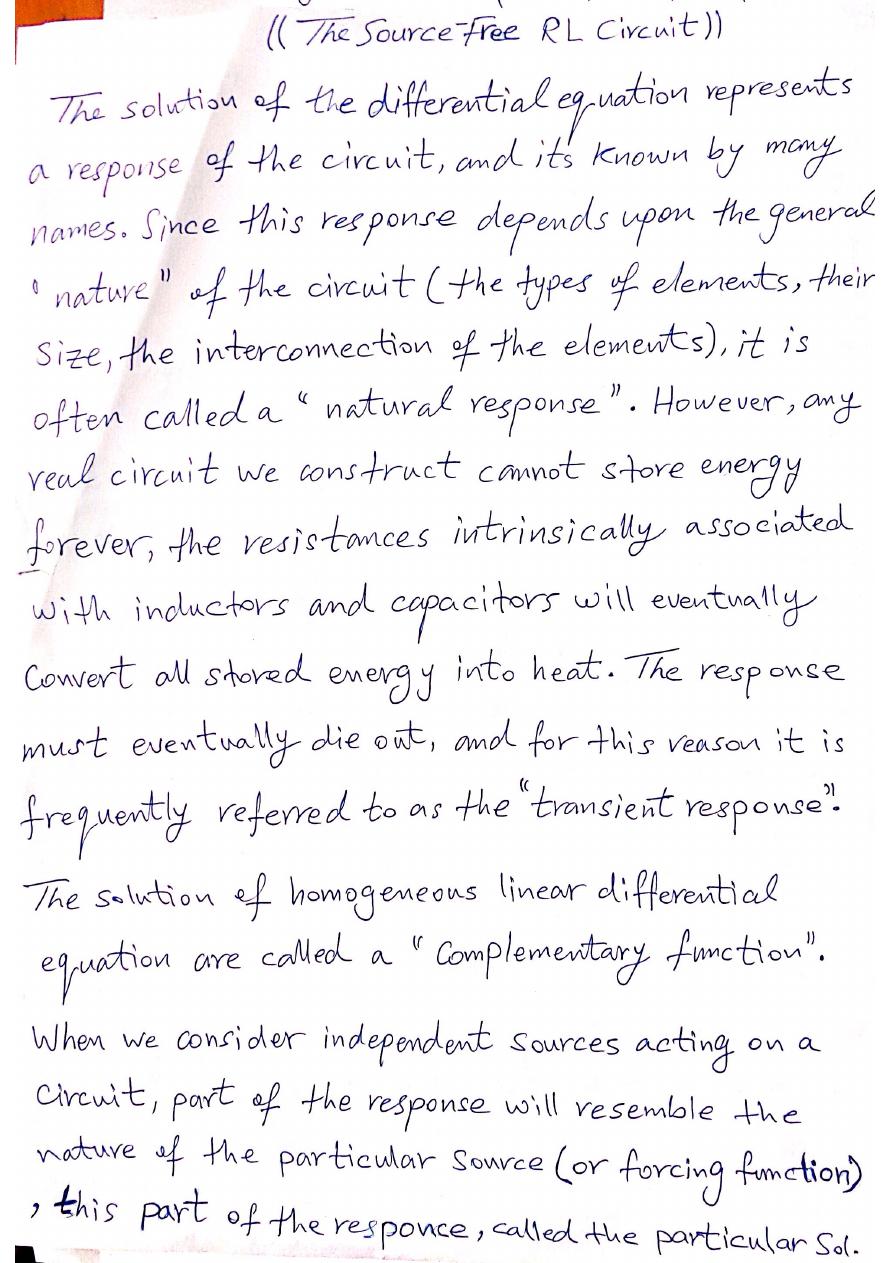 ((The Source-Free RL Circuit))
The solution of the differential equation represents
a response of the circuit, and it's known by many
names. Since this response depends upon the general
"nature" of the circuit (the types of elements, their
Size, the interconnection of the elements), it is
often called a "natural response". However, any
real circuit we construct cannot store energy
forever, the resistances intrinsically associated
with inductors and capacitors will eventually
Convert all stored energy into heat. The response
must eventually die out, and for this reason it is
frequently referred to as the "transient response".
The solution of homogeneous linear differential
equation are called a "Complementary function".
When we consider independent sources acting on a
Circuit, part of the response will resemble the
nature of the particular Source (or forcing function)
, this part of the responce, called the particular Sol.